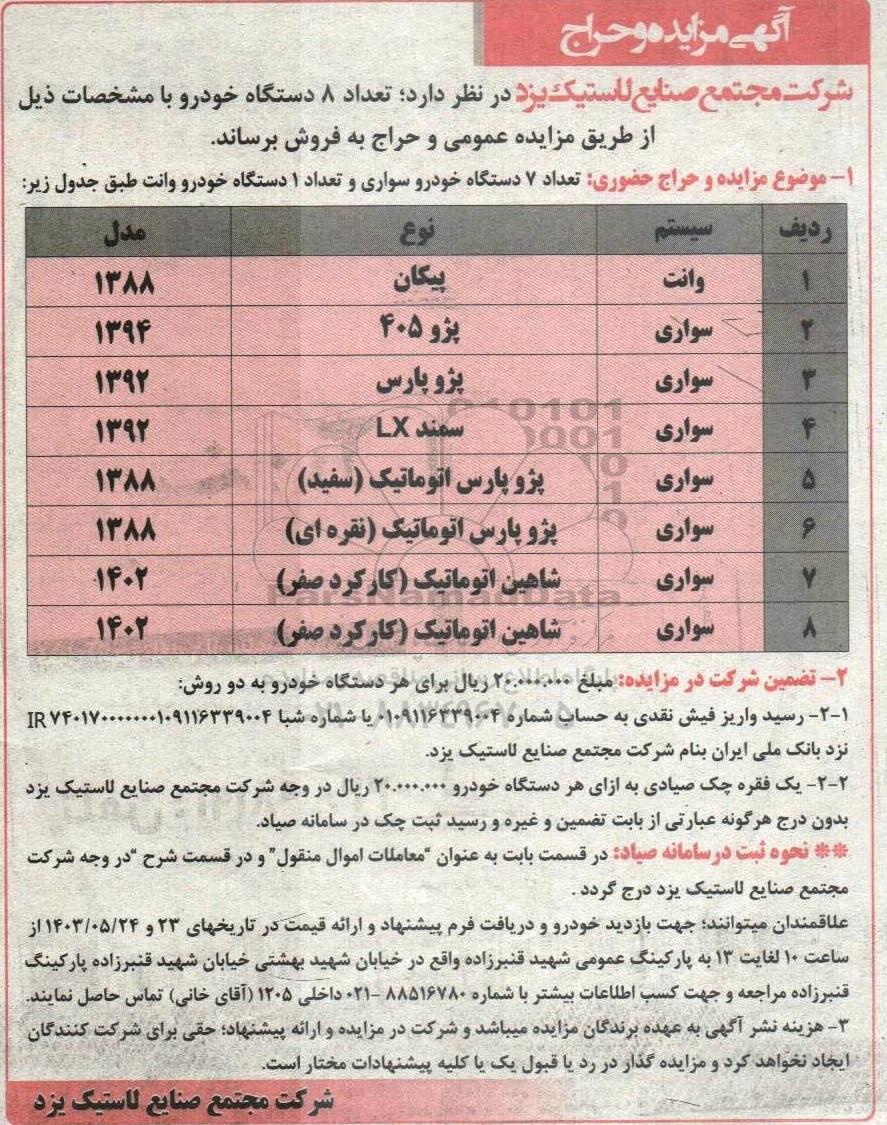 آگهی مزایده و حراج
شرکت مجتمع صنایع لاستیک یزد در نظر دارد؛ تعداد ۸ دستگاه خودرو با مشخصات ذیل
از طریق مزایده عمومی و حراج به فروش برساند.
۱- موضوع مزایده و حراج حضوری: تعداد ۷ دستگاه خودرو سواری و تعداد ۱ دستگاه خودرو وانت طبق جدول زیر:
ردیف سیستم نوع مدل
۱ وانت پیکان ۱۳۸۸
۲ سواری پژو ۴۰۵ ۱۳۹۴
۳ سواری پژو پارس ۱۳۹۲
۴ سواری سمند LX ۱۳۹۲
۵ سواری پژو پارس اتوماتیک (سفید) ۱۳۸۸
۶ سواری پژو پارس اتوماتیک (نقره ای) ۱۳۸۸
۷ سواری شاهین اتوماتیک (کارکرد صفر) ۱۴۰۲
۸ سواری شاهین اتوماتیک (کارکرد صفر) ۱۴۰۲
ParsNamadData
۲- تضمین شرکت در مزایده: مبلغ ۲۰.۰۰۰.۰۰۰ ریال برای هر دستگاه خودرو به دو روش:
۲-۱- رسید واریز فیش نقدی به حساب شماره ۰۱۰۹۱۱۶۳۳۹۰۰۴ یا شماره شبا IR ۷۴۰۱۷۰۰۰۰۰۰۰۱۰۹۱۱۶۳۳۹۰۰۴
نزد بانک ملی ایران بنام شرکت مجتمع صنایع لاستیک یزد.
۲-۲- یک فقره چک صیادی به ازای هر دستگاه خودرو ۲۰.۰۰۰.۰۰۰ ریال در وجه شرکت مجتمع صنایع لاستیک یزد
بدون درج هرگونه عبارتی از بابت تضمین و غیره و رسید ثبت چک در سامانه صیاد.
** نحوه ثبت در سامانه صیاد: در قسمت بابت به عنوان "معاملات اموال منقول" و در قسمت شرح "در وجه شرکت
مجتمع صنایع لاستیک یزد درج گردد.
علاقمندان میتوانند؛ جهت بازدید خودرو و دریافت فرم پیشنهاد و ارائه قیمت در تاریخهای ۲۳ و ۱۴۰۳/۰۵/۲۴ از
ساعت ۱۰ لغایت ۱۳ به پارکینگ عمومی شهید قنبرزاده واقع در خیابان شهید بهشتی خیابان شهید قنبرزاده پارکینگ
قنبرزاده مراجعه و جهت کسب اطلاعات بیشتر با شماره ۸۸۵۱۶۷۸۰ -۰۲۱ داخلی ۱۲۰۵ (آقای خانی) تماس حاصل نمایند.
۳- هزینه نشر آگهی به عهده برندگان مزایده میباشد و شرکت در مزایده و ارائه پیشنهاد؛ حقی برای شرکت کنندگان
ایجاد نخواهد کرد و مزایده گذار در رد یا قبول یک یا کلیه پیشنهادات مختار است.
شرکت مجتمع صنایع لاستیک یزد